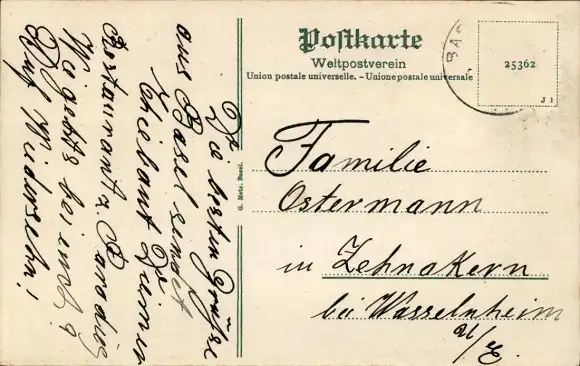 Postkarte
Weltpostverein
Union postale universelle. - Unione postale universale
25362
J 1
BAS
G. Metz, Basel.
Familie
Ostermann
in Zehnakern
bei Wasselnheim
U/E.
Die besten Grüße
aus Basel sendet
Thiebaut Zürner
Restaurant z. Paradies
Wie geht's bei euch?
Auf Wiedersehn!